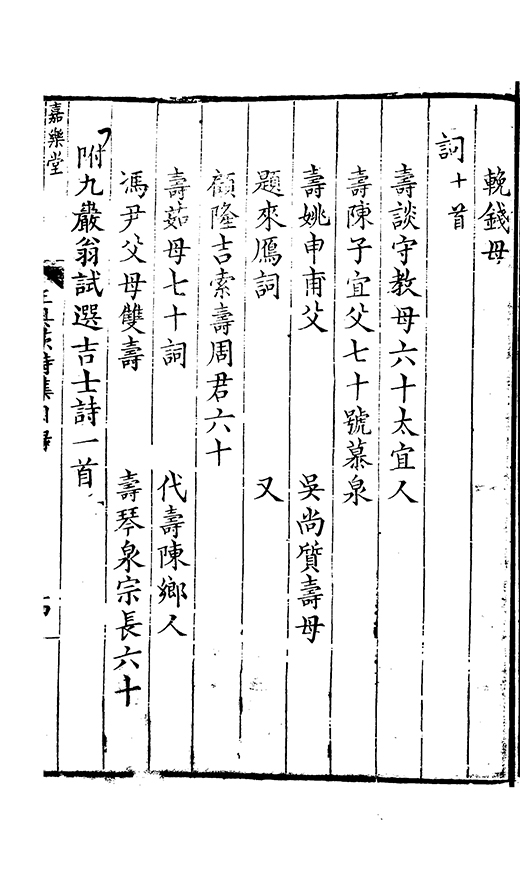 輓錢母
詞十首
壽談守教母六十太宜人
壽陳子宜父七十號慕泉
壽姚申甫父　吳尚質壽母
題來鴈詞　又
顧隆吉索壽周君六十
壽茹母七十詞　代壽陳鄉人
馮尹父母雙壽　壽琴泉宗長六十
附九巖翁試選吉士詩一首
嘉樂堂
詩集目